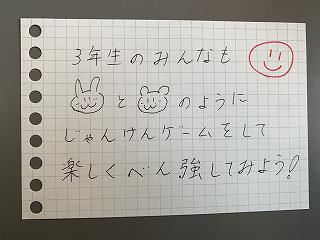 3年生のみんなも
とのように
じゃんけんゲームをして
楽しくべん強してみよう!